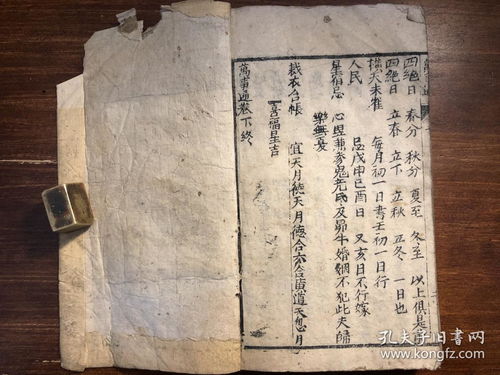 四絕日 春分 秋分 夏至 冬至 以上俱是
四絕日 立春 立下 立秋 立冬 一日也
每月初一日 初一日行
人民 忌戊申己酉日 又亥日不行嫁
星宿忌 心昴兼參鬼 氏及昴牛婚姻不犯此夫婦
樂無憂
裁衣合帳 宜天月德天月德合六合黃道天恩月
喜福星吉
萬事通卷下終
孔夫子旧书网
www.kongfz.com